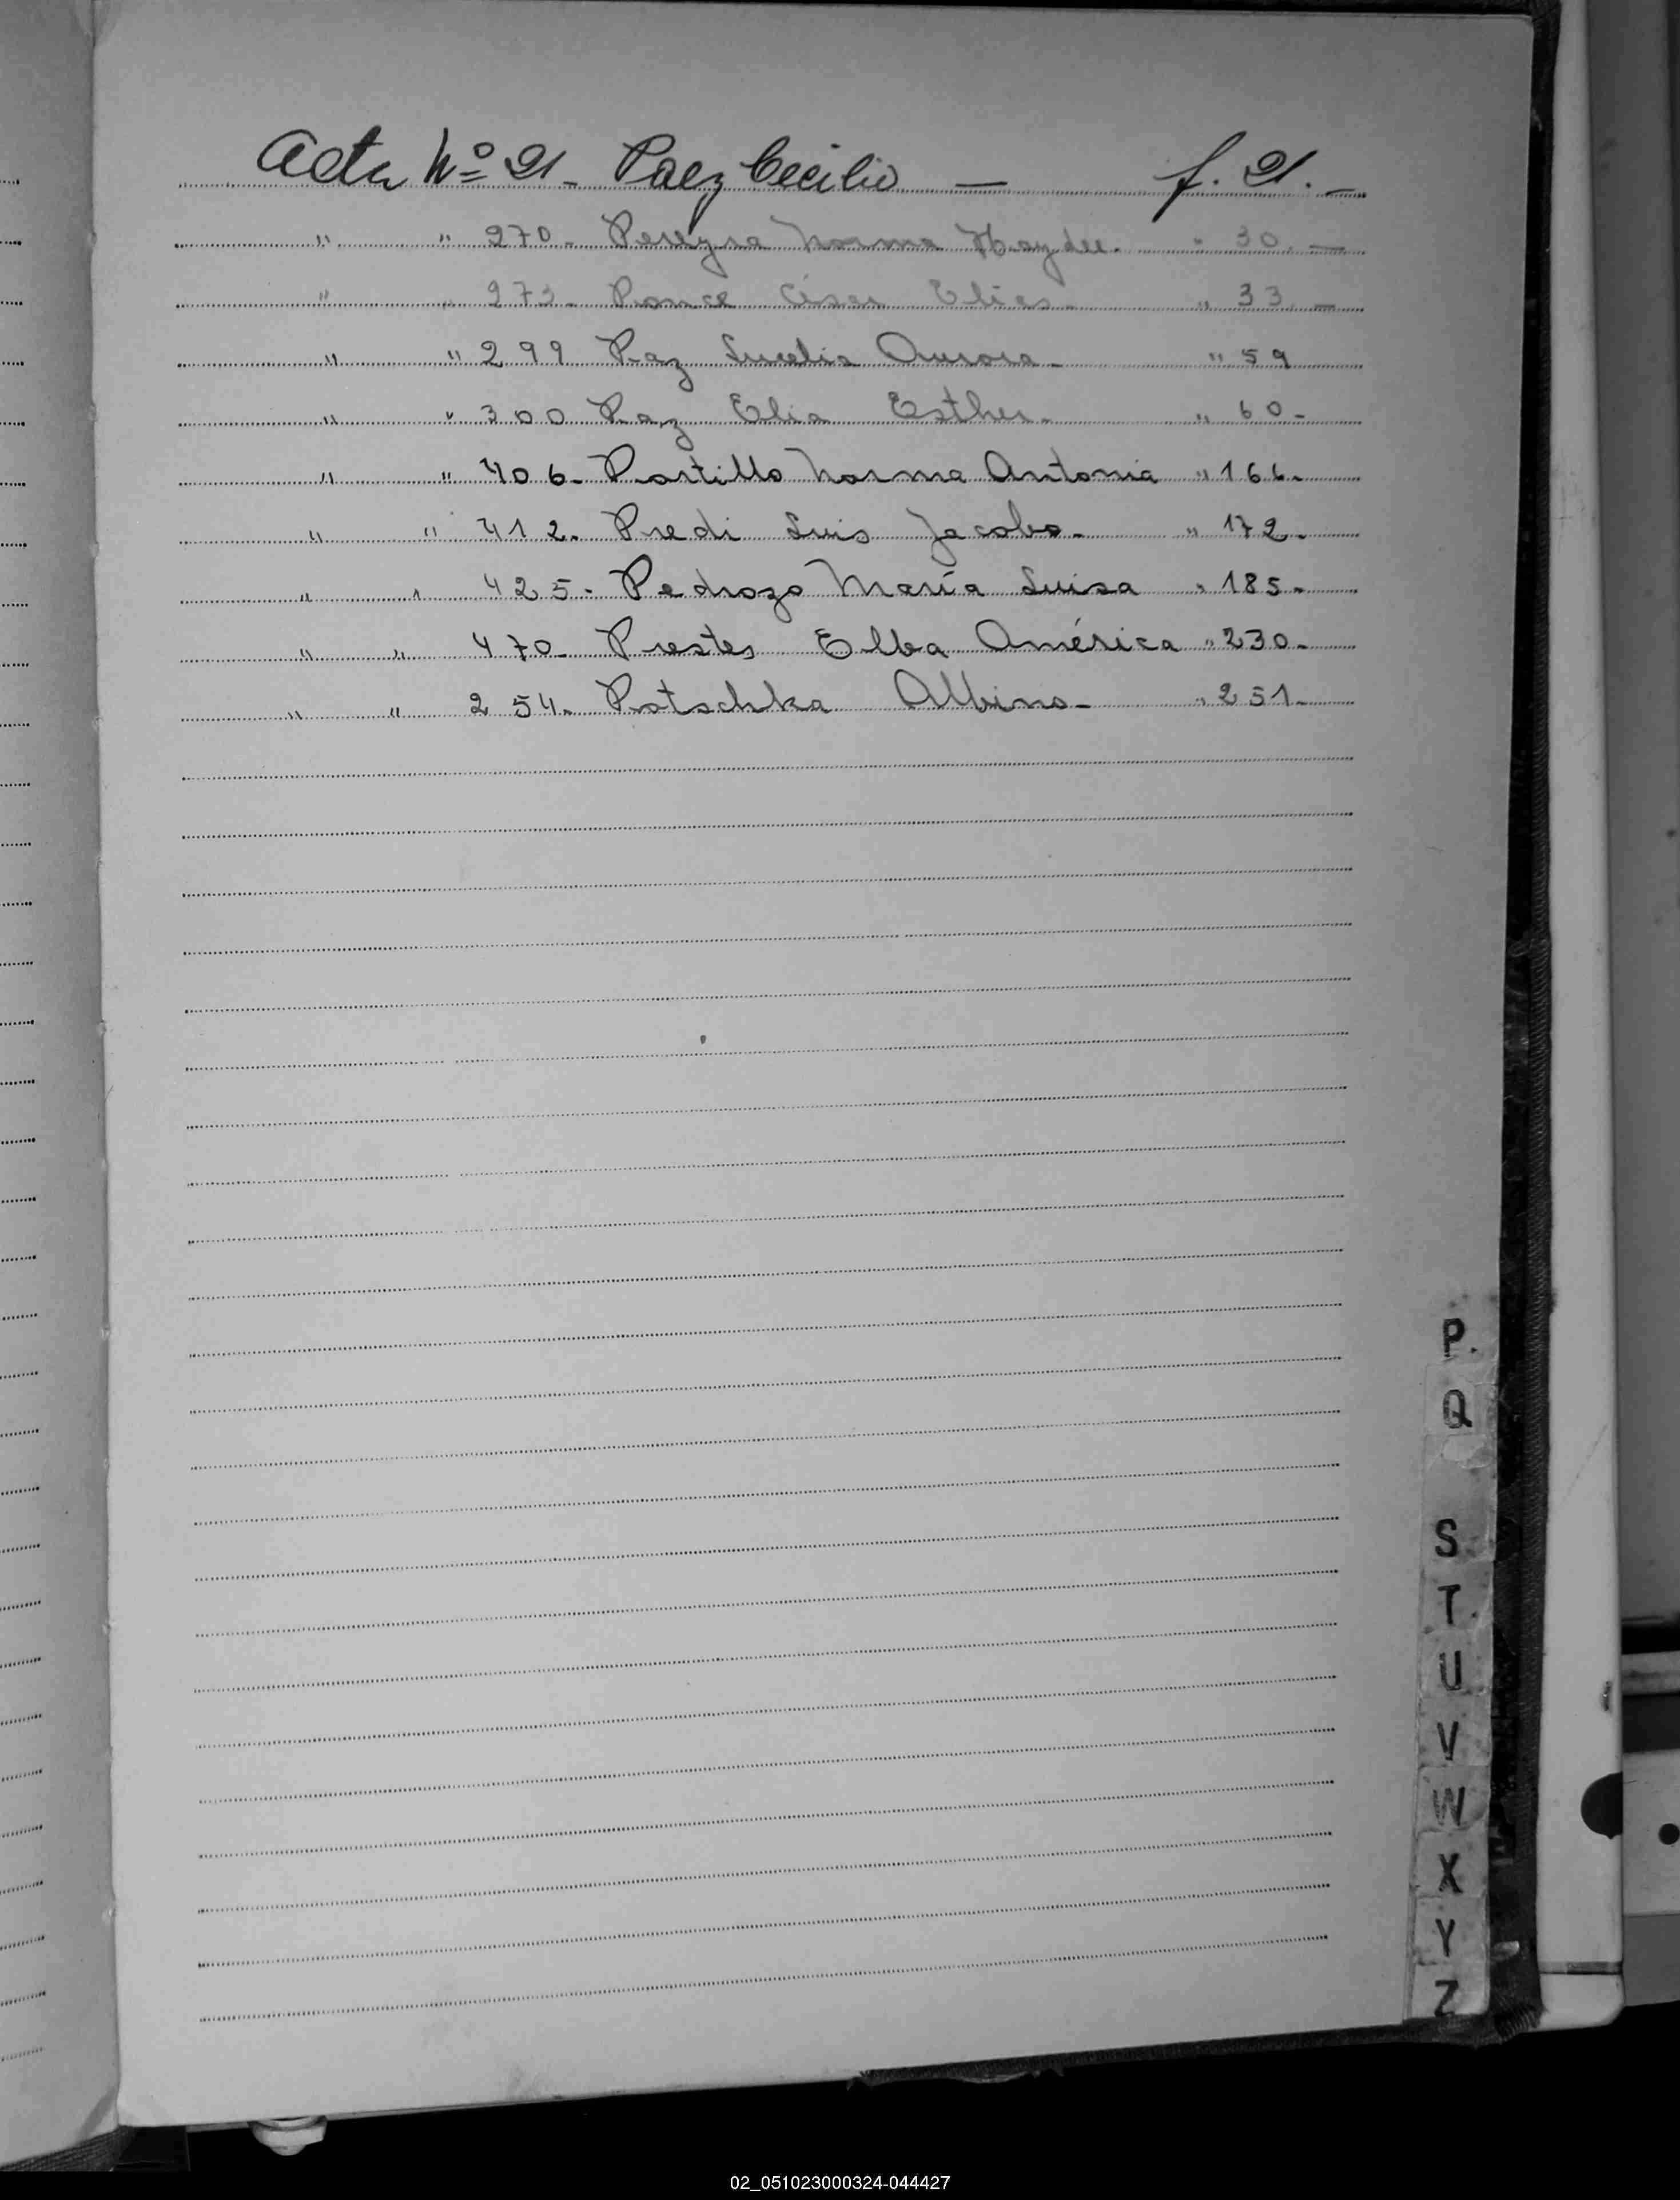 Acta Nº 21 - Paez Cecilio — f. 21. -
" " 270 - Pereyra Norma Haydee. " 30. —
" " 273 - Ponce César Elias - " 33 -
" " 299 Paz Lucelia Aurora - " 59
" " 300 Paz Elia Esther. " 60 -
" " 406 - Portillo Norma Antonia " 166.
" " 412. Predi Luis Jacobo. " 172.
" " 425 - Pedrozo María Luisa " 185.
" " 470 - Prestes Elba América " 230 -
" " 254. Potschka Albino - " 251 -
P.
Q
S
T.
U
V
W
X
Y
Z
02_051023000324-044427